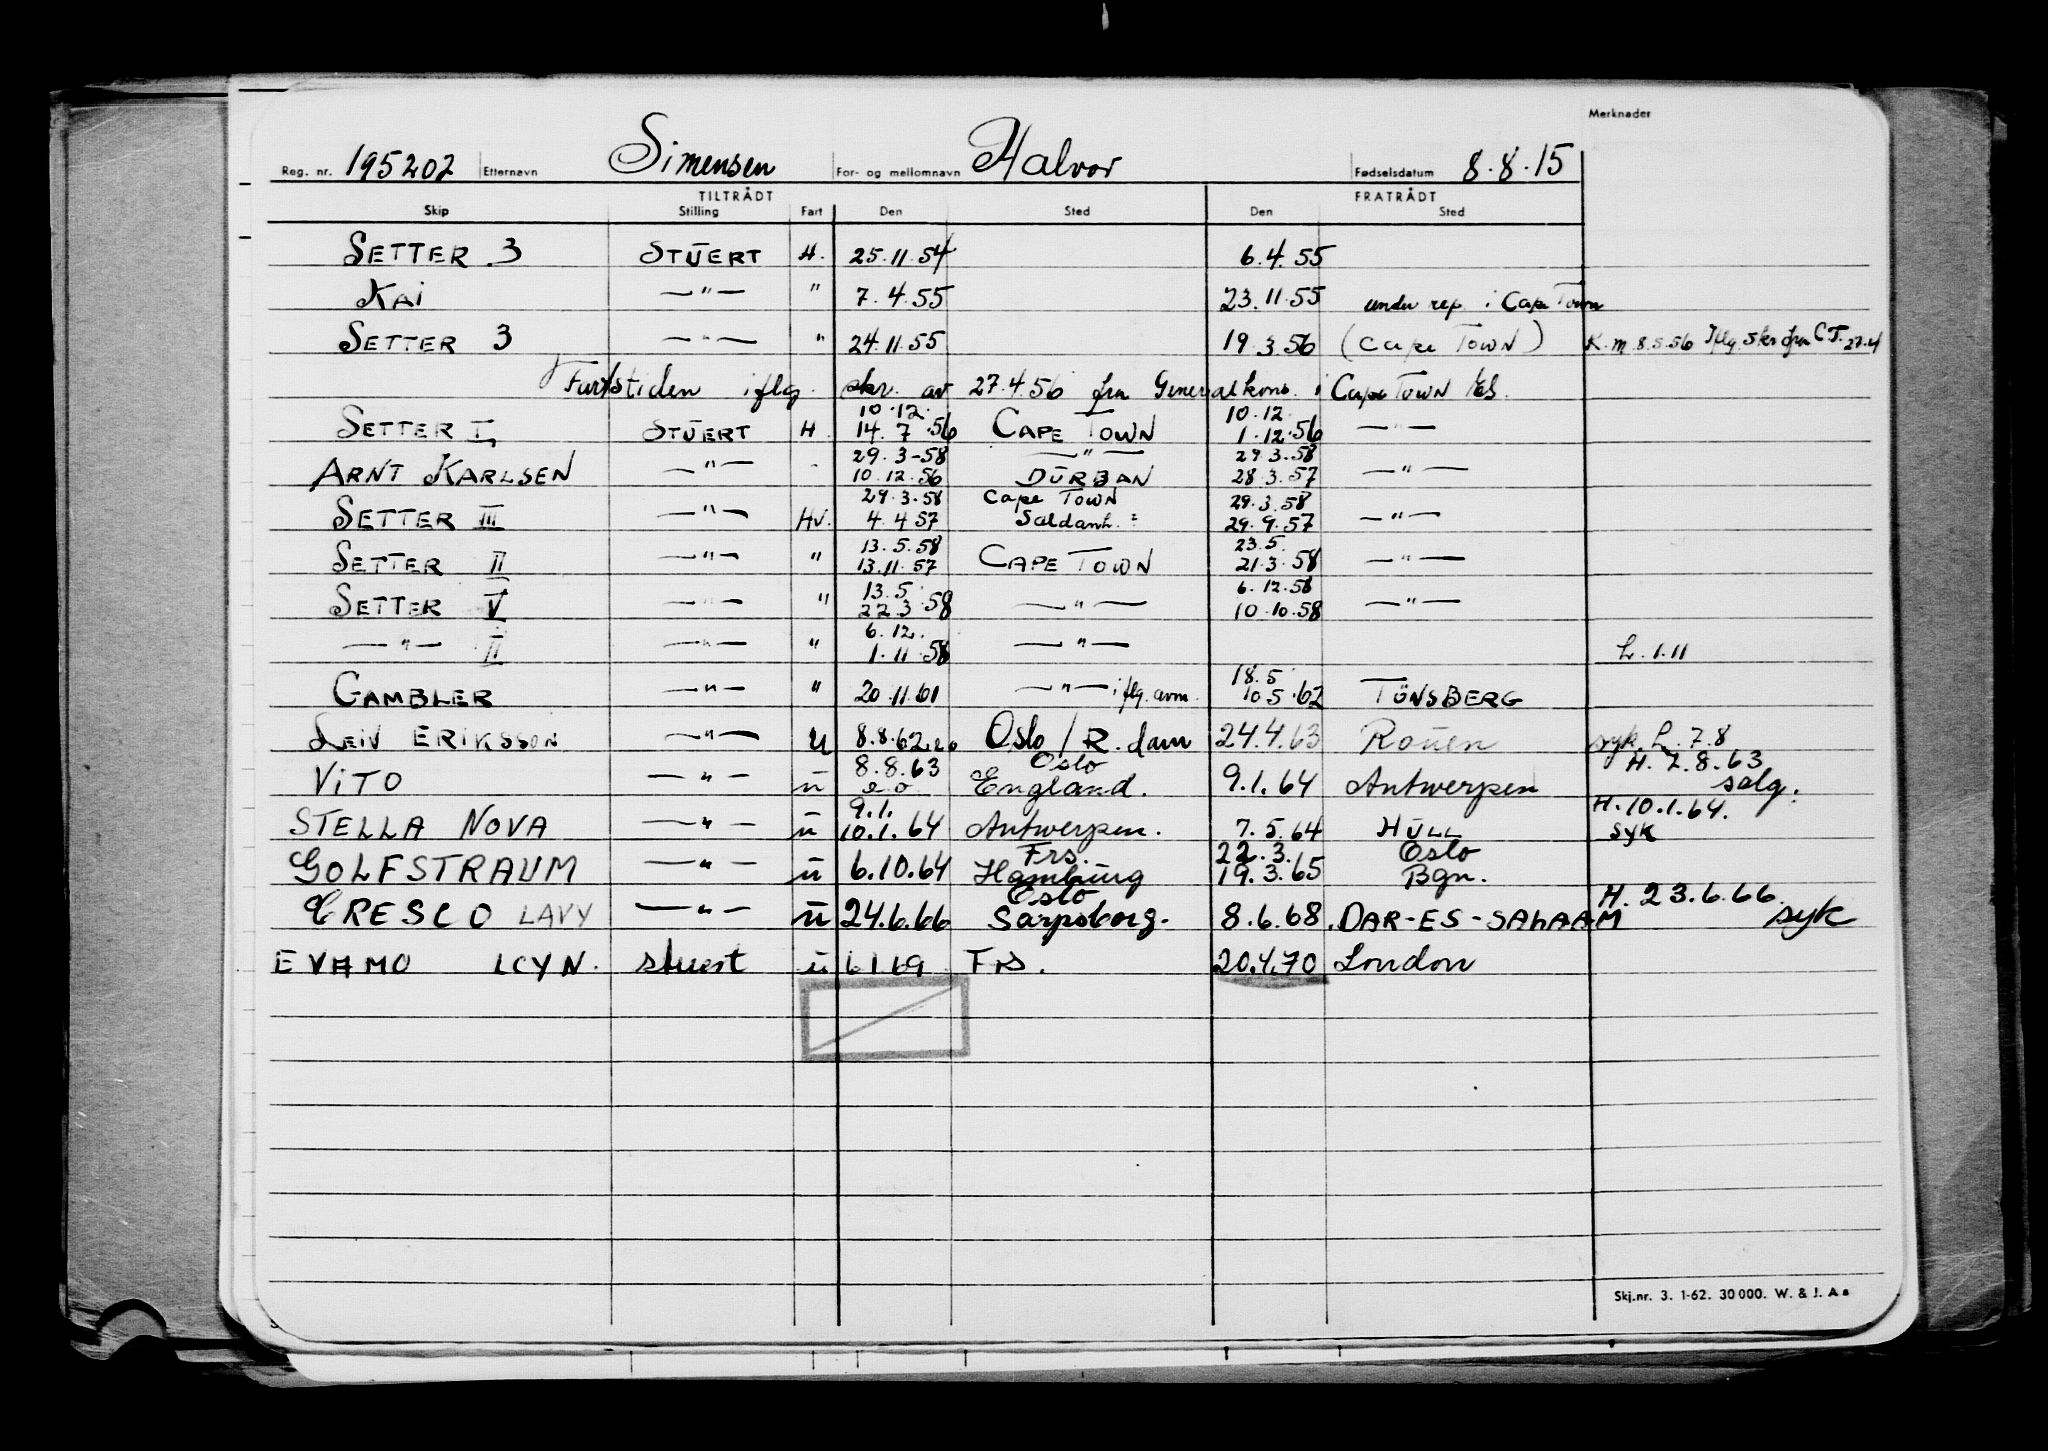 Merknader
Reg. nr. 195202 Etternavn Simensen For- og mellomnavn Halvor Fødselsdatum 8.8.15
TILTRÅDT FRATRÅDT
Skip Stilling Fart Den Sted Den Sted
SETTER 3 STUERT H. 25.11.54 6.4.55
KAI —"— " 7.4.55 23.11.55 under rep. i Cape Town
SETTER 3 —"— " 24.11.55 19.3.56 (Cape Town) K.m 8.5.56 Iflg. skr fra C.T. 27.4
Fartstiden iflg. skr. av 27.4.56 fra Generalkons. i Cape Town
10.12. 10.12.
SETTER I STUERT H 14.7.56 CAPE TOWN 1.12.56 —"—
29.3-58 —"— 29.3.58
ARNT KARLSEN —"— - 10.12.56 DURBAN 28.3.57 —"—
29.3.58 Cape Town 29.3.58
SETTER III —"— HV. 4.4.57 Saldanh. 29.9.57 —"—
13.5.58 23.5.
SETTER II —"— " 13.11.57 CAPE TOWN 21.3.58 —"—
13.5 6.12.58
SETTER V —"— " 22.3.58 —"— 10.10.58 —"—
6.12.
—"— II —"— " 1.11.58 —"— L. 1.11
18.5
GAMBLER —"— " 20.11.61 —"— iflg. avm. 10.5.62 TÖNSBERG
LEIV ERIKSSON —"— u 8.8.62 Oslo / R.dam 24.4.63 Rouen syk. L. 7.8
8.8.63 Oslo H. 7.8.63
VITO —"— u e.o. England. 9.1.64 Antwerpen salg.
9.1. H. 10.1.64.
STELLA NOVA —"— u 10.1.64 Antwerpen. 7.5.64 HULL syk
Frs. 22.3. Oslo
GOLFSTRAUM —"— u 6.10.64 Hamburg 19.3.65 Bgn.
Oslo H. 23.6.66
CRESCO LAVY —"— u 24.6.66 Sarpsborg. 8.6.68 DAR-ES-SALAAM syk
EVAMO LCYN. stuert u 6.1.69 Frs. 20.4.70 London
Skj.nr. 3. 1-62. 30 000. W. & J. A s